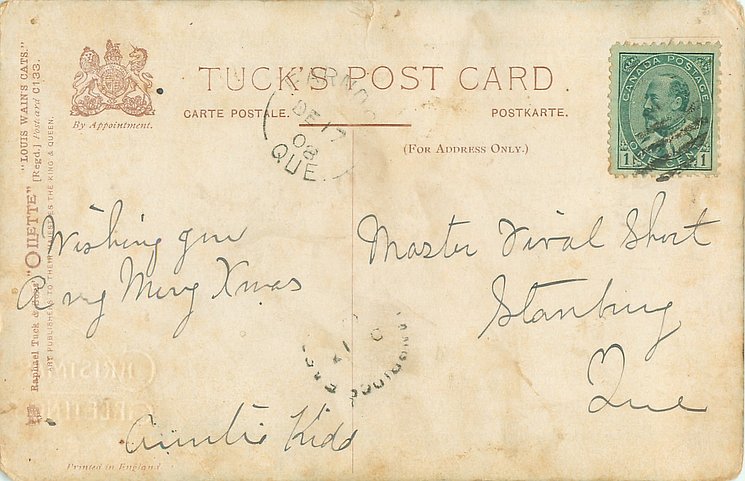 TUCK'S POST CARD.
CARTE POSTALE.
POSTKARTE.
(FOR ADDRESS ONLY.)
By Appointment.
"LOUIS WAIN'S CATS."
[Regd.] Postcard C133.
Raphael Tuck & Sons' "OILETTE"
ART PUBLISHERS TO THEIR MAJESTIES THE KING & QUEEN.
CANADA POSTAGE
1 ONE CENT 1
DE 17
08
QUE
Wishing you
A very Merry Xmas
Auntie Kidd
Master Vival Short
Stanbury
Que
CHRISTMAS
GREETING
Printed in England.